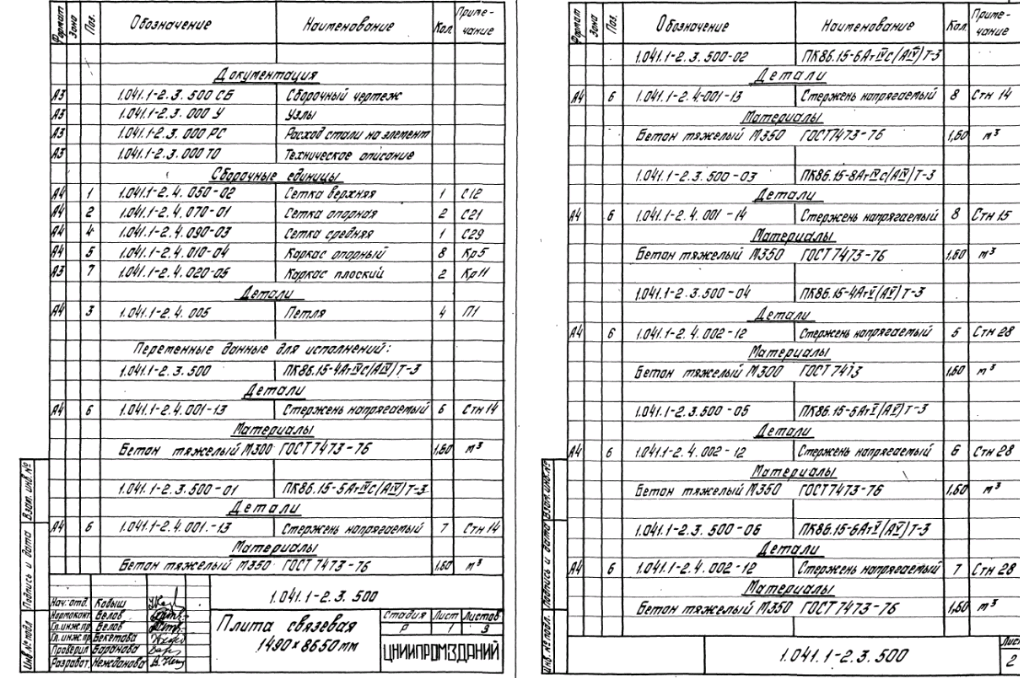 Формат Зона Поз. Обозначение Наименование Кол. Примечание
Документация
А3 1.041.1-2.3.500 СБ Сборочный чертеж
А3 1.041.1-2.3.000 У Узлы
А3 1.041.1-2.3.000 РС Расход стали на элемент
А3 1.041.1-2.3.000 ТО Техническое описание
Сборочные единицы
А4 1 1.041.1-2.4.050-02 Сетка верхняя 1 С12
А4 2 1.041.1-2.4.070-01 Сетка опорная 2 С21
А4 4 1.041.1-2.4.090-03 Сетка средняя 1 С29
А4 5 1.041.1-2.4.010-04 Каркас опорный 8 Кр5
А3 7 1.041.1-2.4.020-05 Каркас плоский 2 Кр11
Детали
А4 3 1.041.1-2.4.005 Петля 4 П1
Переменные данные для исполнений:
1.041.1-2.3.500 ПК86.15-4АтIVС(АIV)Т-3
Детали
А4 6 1.041.1-2.4.001-13 Стержень напрягаемый 6 Стн 14
Материалы
Бетон тяжелый М300 ГОСТ 7473-76 1,60 м³
1.041.1-2.3.500-01 ПК86.15-5АтIVС(АIV)Т-3
Детали
А4 6 1.041.1-2.4.001.-13 Стержень напрягаемый 7 Стн 14
Материалы
Бетон тяжелый М350 ГОСТ 7473-76 1,60 м³
Инв.№ подл. Подпись и дата Взам. инв.№
Нач. отд. Ковыш
Нормоконт. Белов
Гл. инж.пр. Белов
Гл. инж.пр. Бекетова
Проверил Баранова
Разработ. Нежданова
1.041.1-2.3.500
Плита связевая
1490×8650мм
Стадия Лист Листов
Р 1 9
ЦНИИПРОМЗДАНИЙ
Формат Зона Поз. Обозначение Наименование Кол. Примечание
1.041.1-2.3.500-02 ПК86.15-6АтIVС(АIV)Т-3
Детали
А4 6 1.041.1-2.4-001-13 Стержень напрягаемый 8 Стн 14
Материалы
Бетон тяжелый М350 ГОСТ7473-76 1,60 м³
1.041.1-2.3.500-03 ПК86.15-8АтIVС(АIV)Т-3
Детали
А4 6 1.041.1-2.4.001-14 Стержень напрягаемый 8 Стн 15
Материалы
Бетон тяжелый М350 ГОСТ 7473-76 1,60 м³
1.041.1-2.3.500-04 ПК86.15-4АтV(АV)Т-3
Детали
А4 6 1.041.1-2.4.002-12 Стержень напрягаемый 5 Стн 28
Материалы
Бетон тяжелый М300 ГОСТ 7473 1,60 м³
1.041.1-2.3.500-05 ПК86.15-5АтV(АV)Т-3
Детали
А4 6 1.041.1-2.4.002-12 Стержень напрягаемый 6 Стн 28
Материалы
Бетон тяжелый М350 ГОСТ 7473-76 1,60 м³
1.041.1-2.3.500-06 ПК86.15-6АтV(АV)Т-3
Детали
А4 6 1.041.1-2.4.002-12 Стержень напрягаемый 7 Стн 28
Материалы
Бетон тяжелый М350 ГОСТ 7473-76 1,60 м³
Инв.№ подл. Подпись и дата Взам.инв.№
1.041.1-2.3.500
Лист
2